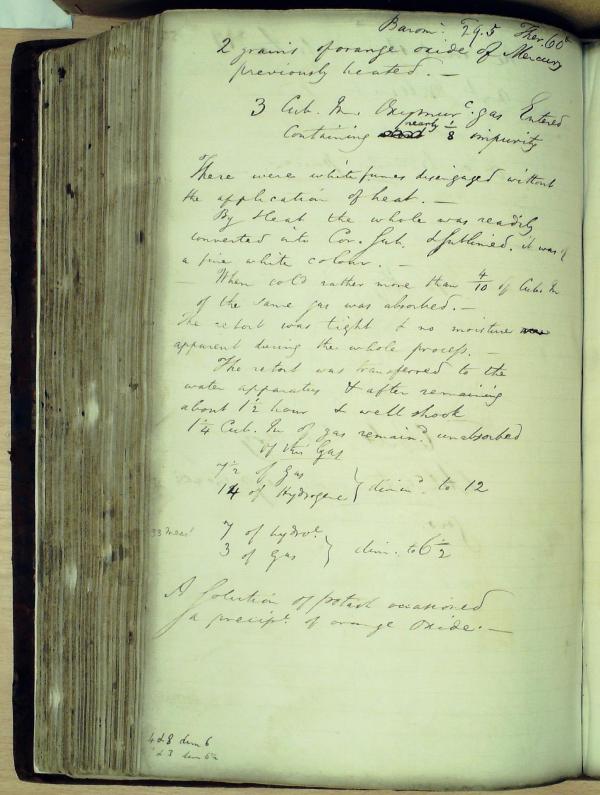 Barom. 29.5 Ther. 60°
2 grains of orange oxide of Mercury
previously heated. —
3 Cub. In. Oxymurc. gas Entered
Containing nearly 1/8 impurity
There were white fumes disengaged without
the application of heat. —
By Heat the whole was readily
converted into Cor. Sub. & sublimed. it was of
a fine white colour. —
— When cold rather more than 4/10 of Cub. In
of the same gas was absorbed. —
The retort was tight & no moisture was
apparent during the whole process. —
The retort was transferred to the
water apparatus & after remaining
about 1½ hour & well shook
1¼ Cub. In of gas remaind. unabsorbed
of this Gas
7½ of Gas
14 of Hydrogene } dimind. to 12
7 of hydroe.
3 of Gas } dim. to 6½
A Solution of potash occasioned
a precipt. of orange Oxide. —
4 & 8 dim 6
& 3 dim 6½